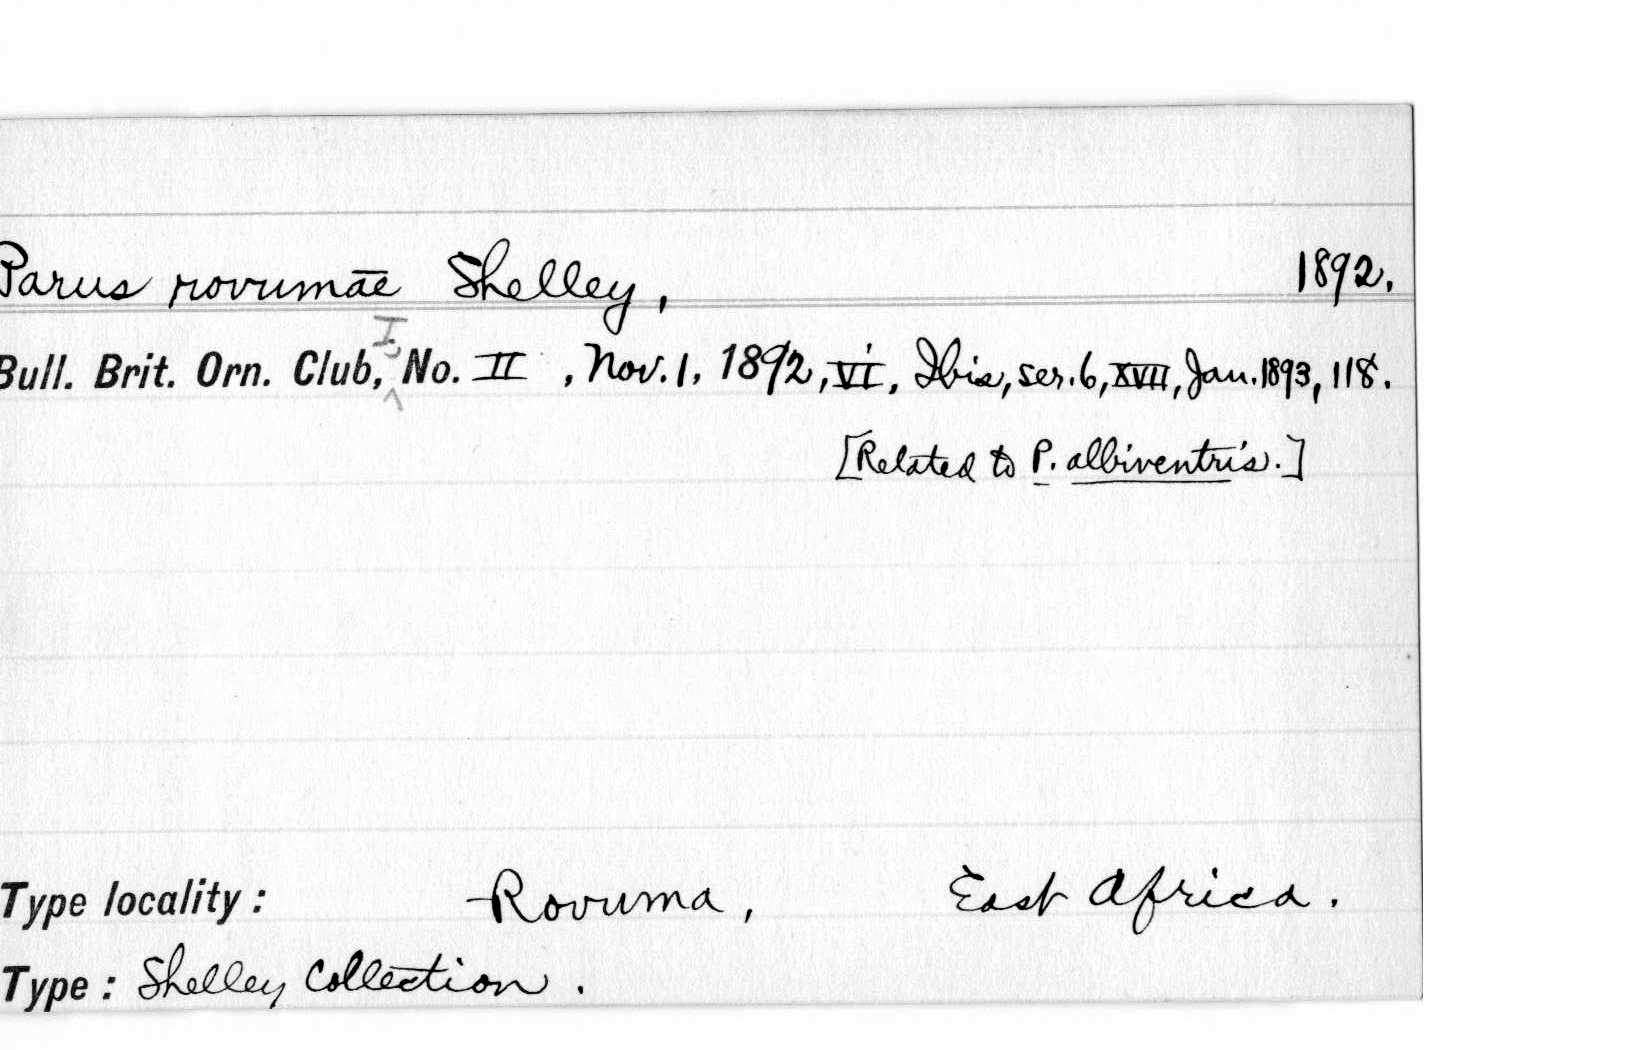 Parus rovumae Shelley, 1892.
Bull. Brit. Orn. Club, I, No. II, Nov. 1, 1892, vi, Ibis, ser. 6, XVII, Jan. 1893, 118.
[Related to P. albiventris.]
Type locality: Rovuma, East Africa.
Type: Shelley Collection.